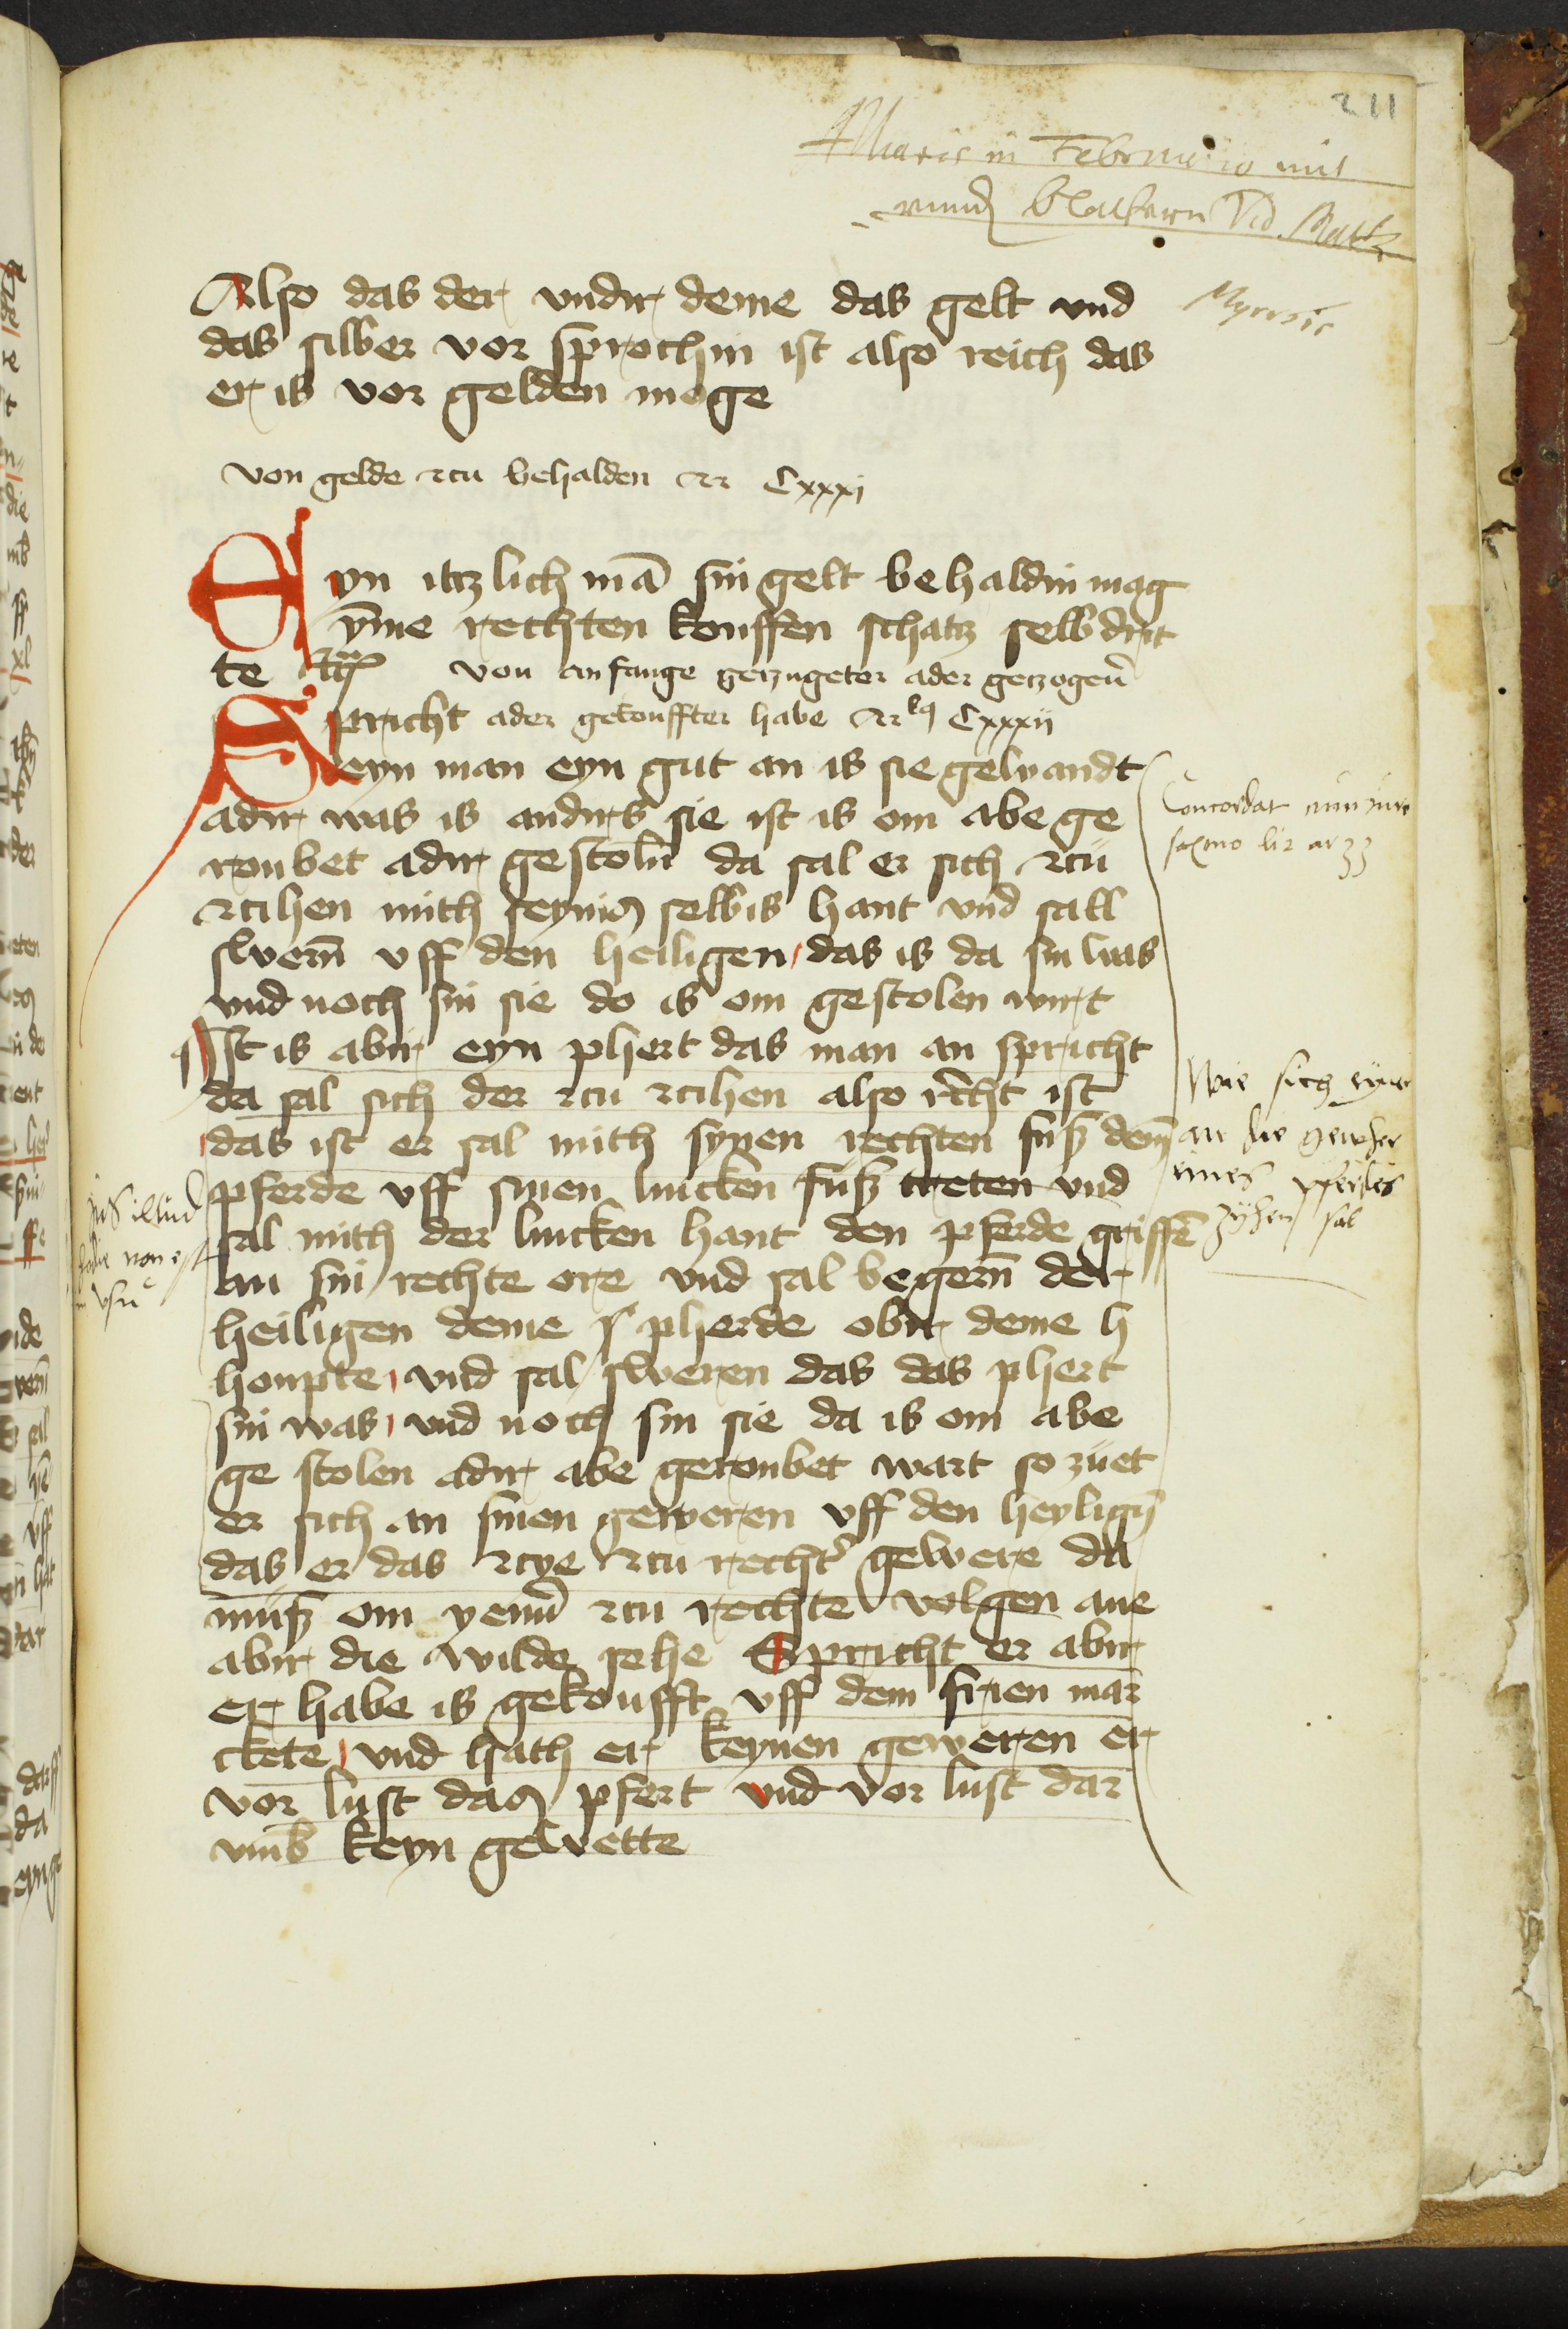 211
in Februario mit
Also das der vndir deme das gelt vnd
das silber vor sprochin ist also reich das
er is vor gelden moge
von gelde zcu behalden Cxxxj
Eyn itzlich mā sin gelt behaldin mag
yme rechten kouffen schatz selb drit
te von anfange geczugeter ader geczogeñ
Spricht ader gekouffter habe Cxxxij
eyn man eyn gut an is sie gewandt
adir was is andirs sie ist is om abe ge
roubet adir gestoln da sal er sich zcu
zcihen mith seynis selbis hant vnd sall
swern̄ vff den heiligen das is da sin was
vnd noch sin sie do is om gestolen wirt
Ist is abir eyn phert das man an spricht
da sal sich der zcu zcihen also recht ist
das ist er sal mith synen rechten fuß dem̄
pferde vff sinen lincken fuß treten vnd
sal mith der lincken hant den pferde griffē
an sin rechte ore vnd sal begern̄ der
heiligen deme pherde obir deme h
houpte vnd sal sweren das das phert
sin was vnd noch sin sie da is om abe
ge stolen adir abe geroubet wart so zuet
er sich an sinen geweren vff den heyligē
das er das zcye zcu recht' gewere da
muß om yenir zcu rechte volgen ane
abir die wilde sehe Spricht er abir
er habe is gekoufft vff dem frien mar
ckete vnd hath er keynen geweren er
vor lust das pfert vnd vor lust dar
vmb keyn gewette
Concordat cum iure
Wie sich eyner
an die gewher
eines pferdes
zyhen sal
Jus illud
hodie non est
in vsu